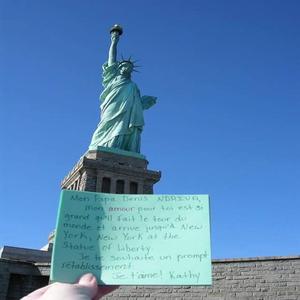 Mon Papa Denis
Mon amour pour toi est si
grand qu'il fait le tour du
monde et arrive jusqu'à New
York, New York at the
Statue of Liberty
Je te souhaite un prompt
rétablissement.
Je t'aime! Kathy